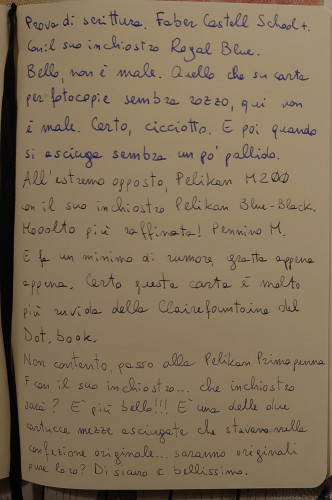 Prova di scrittura. Faber Castell School+.
Con il suo inchiostro Royal Blue.
Bello, non è male. Quello che su carta
per fotocopie sembra rozzo, qui non
è male. Certo, cicciotto. E poi quando
si asciuga sembra un po' pallido.
All'estremo opposto, Pelikan M200
con il suo inchiostro Pelikan Blue-Black.
Mooolto più raffinata! Pennino M.
E fa un minimo di rumore, gratta appena
appena. Certo questa carta è molto
più ruvida della Clairefountaine del
Dot. book.
Non contento, passo alla Pelikan Primapenna
F con il suo inchiostro... che inchiostro
sarà? E' più bello!!! E' una delle due
cartucce mezze asciugate che stavano nella
confezione originale... saranno originali
pure loro? Di sicuro è bellissimo.